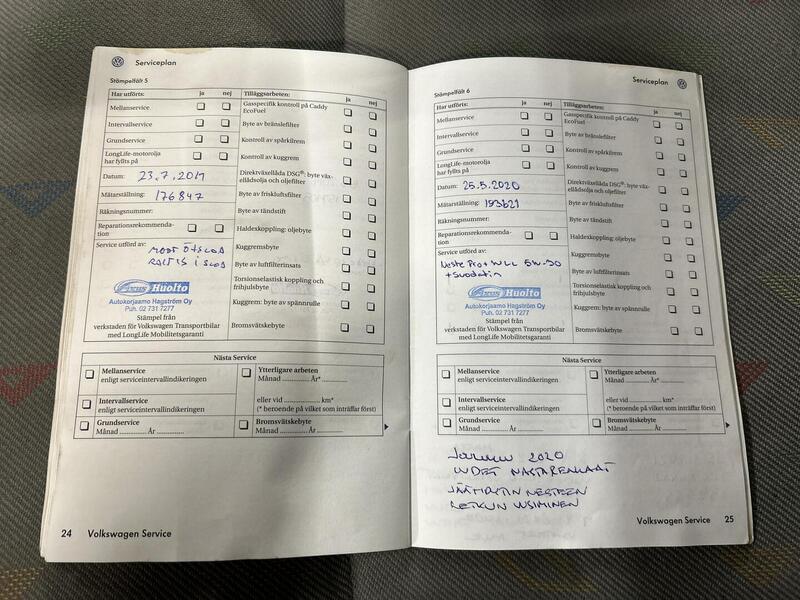 Serviceplan
Stämpelfält 5
Har utförts: ja nej
Mellanservice
Intervallservice
Grundservice
LongLife-motorolja
har fyllts på
Datum: 23.7.2019
Mätarställning: 176847
Räkningsnummer:
Reparationsrekommenda-
tion
Service utförd av:
Huolto
Autokorjaamo Hagström Oy
Puh. 02 731 7277
Stämpel från
verkstaden för Volkswagen Transportbilar
med LongLife Mobilitetsgaranti
Tilläggsarbeten: ja nej
Gasspecifik kontroll på Caddy
EcoFuel
Byte av bränslefilter
Kontroll av spårkilrem
Kontroll av kuggrem
Direktväxellåda DSG®: byte väx-
ellådsolja och oljefilter
Byte av friskluftsfilter
Byte av tändstift
Haldexkoppling: oljebyte
Kuggremsbyte
Byte av luftfilterinsats
Torsionselastisk koppling och
frihjulsbyte
Kuggrem: byte av spännrulle
Bromsvätskebyte
Nästa Service
Mellanservice
enligt serviceintervallindikeringen
Intervallservice
enligt serviceintervallindikeringen
Grundservice
Månad ............ År ............
Ytterligare arbeten
Månad ............ År* ............
eller vid .................. km*
(* beroende på vilket som inträffar först)
Bromsvätskebyte
Månad ............ År ............
24 Volkswagen Service
Serviceplan
Stämpelfält 6
Har utförts: ja nej
Mellanservice
Intervallservice
Grundservice
LongLife-motorolja
har fyllts på
Datum: 25.5.2020
Mätarställning: 193621
Räkningsnummer:
Reparationsrekommenda-
tion
Service utförd av:
Neste Pro+ WLL 5W-30
+ suodatin
Huolto
Autokorjaamo Hagström Oy
Puh. 02 731 7277
Stämpel från
verkstaden för Volkswagen Transportbilar
med LongLife Mobilitetsgaranti
Tilläggsarbeten: ja nej
Gasspecifik kontroll på Caddy
EcoFuel
Byte av bränslefilter
Kontroll av spårkilrem
Kontroll av kuggrem
Direktväxellåda DSG®: byte väx-
ellådsolja och oljefilter
Byte av friskluftsfilter
Byte av tändstift
Haldexkoppling: oljebyte
Kuggremsbyte
Byte av luftfilterinsats
Torsionselastisk koppling och
frihjulsbyte
Kuggrem: byte av spännrulle
Bromsvätskebyte
Nästa Service
Mellanservice
enligt serviceintervallindikeringen
Intervallservice
enligt serviceintervallindikeringen
Grundservice
Månad ............ År ............
Ytterligare arbeten
Månad ............ År* ............
eller vid .................. km*
(* beroende på vilket som inträffar först)
Bromsvätskebyte
Månad ............ År ............
JOULUKUU 2020
UUDET NASTARENKAAT
JÄÄHDYTIN NESTEEN
LETKUN UUSIMINEN
Volkswagen Service 25